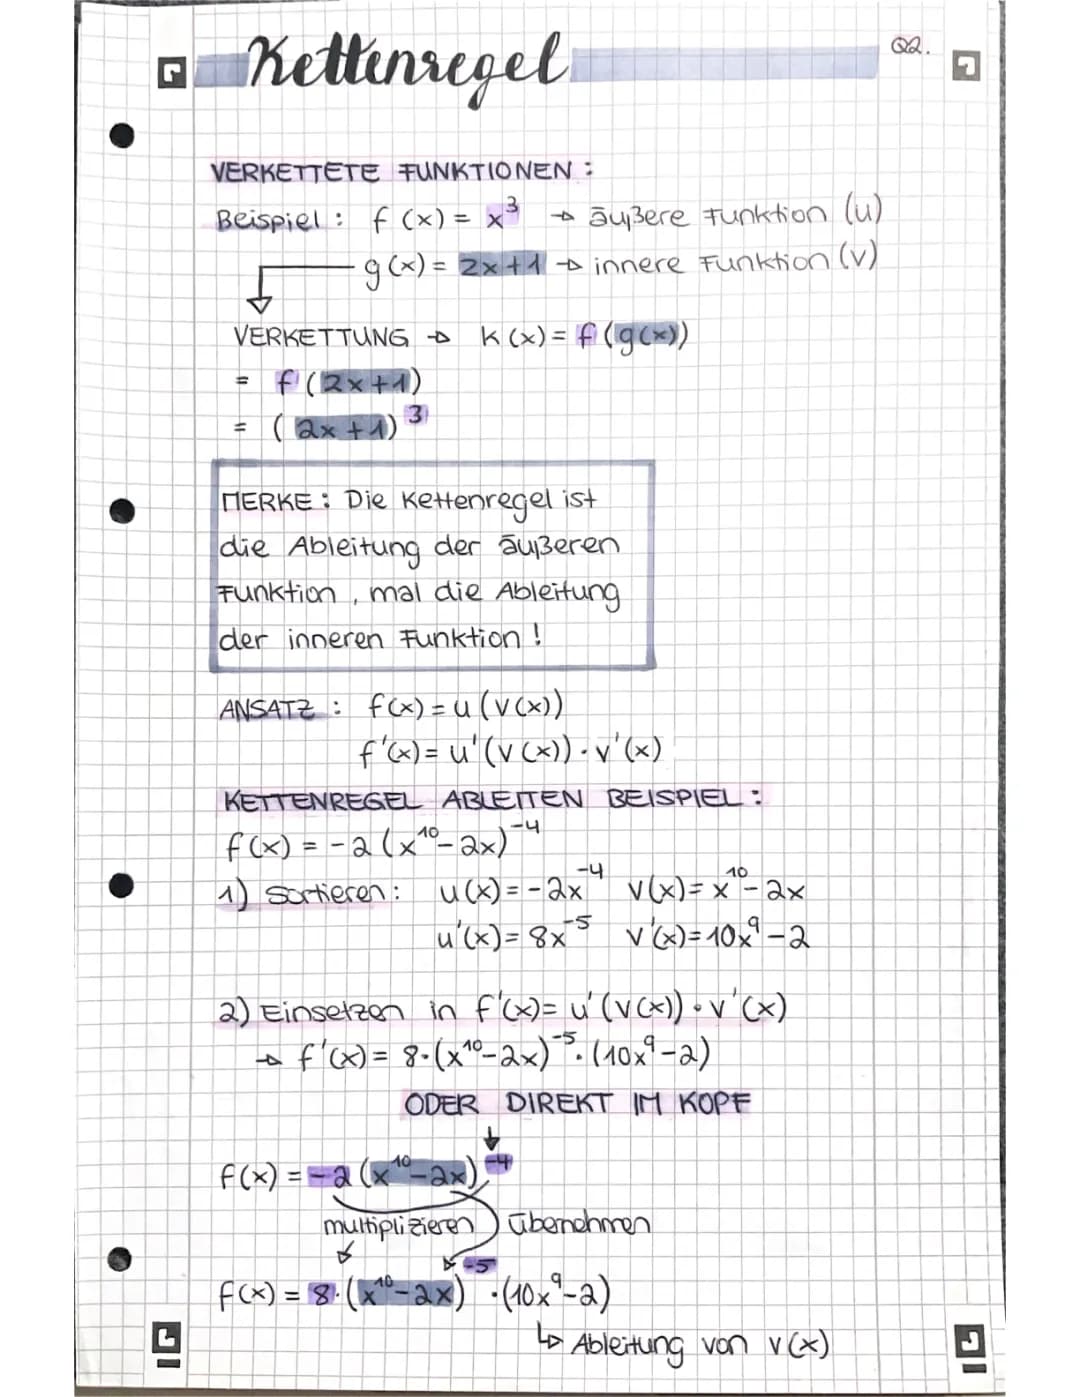 Kettenregel
Q2.
VERKETTETE FUNKTIONEN :
Beispiel : f(x) = x³ → äußere Funktion (u)
g(x) = 2x+1 → innere Funktion (v)
VERKETTUNG → k(x) = f(g(x))
= f(2x+1)
= (2x+1)³
MERKE : Die Kettenregel ist
die Ableitung der äußeren
Funktion, mal die Ableitung
der inneren Funktion !
ANSATZ : f(x) = u(v(x))
f'(x) = u'(v(x)) · v'(x)
KETTENREGEL ABLEITEN BEISPIEL :
f(x) = -2(x¹⁰-2x)⁻⁴
1) Sortieren : u(x) = -2x⁻⁴ v(x) = x¹⁰-2x
u'(x) = 8x⁻⁵ v'(x) = 10x⁹-2
2) Einsetzen in f'(x) = u'(v(x)) · v'(x)
→ f'(x) = 8·(x¹⁰-2x)⁻⁵·(10x⁹-2)
ODER DIREKT IM KOPF
f(x) = -2(x¹⁰-2x)⁻⁴
multiplizieren übernehmen
f(x) = 8·(x¹⁰-2x)⁻⁵·(10x⁹-2)
↳ Ableitung von v(x)